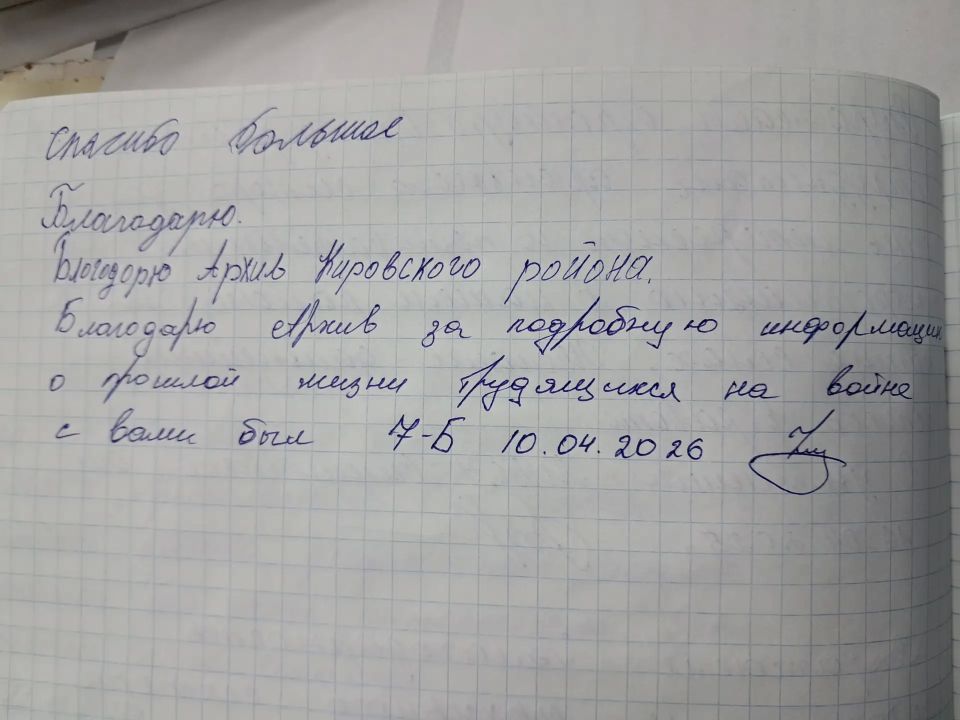 спасибо большое
Благодарю.
Благодорю Архив Кировского района.
Благодарю Архив за подробную информацию
о прошлой жизни трудящихся на войне
с вами был 7-Б 10.04.2026